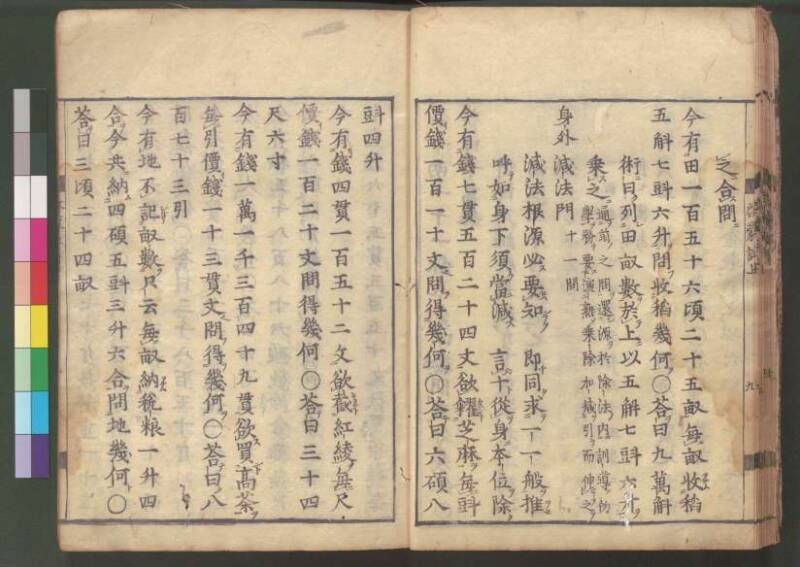 之合問
今有田一百五十六頃二十五畝每畝收稻
五斛七㪷六升問收稻幾何〇荅曰九萬斛
術曰列田畝數於上以五斛七㪷六升
乘之
之問還源於除法內訓導仍
要演乘除加減引而使之
身外減法門 十一問
減法根源必要知 即同求一一般推
呼如身下須當減 言十從身本位除
今有錢七貫五百二十四文欲糴芝麻每㪷
價錢一百一十文問得幾何〇荅曰六碩八
九
㪷四升
今有錢四貫一百五十二文欲截紅綾每尺
價錢一百二十文問得幾何〇荅曰三十四
尺六寸
今有錢一萬一千三百四十九貫欲買高茶
每引價錢一十三貫文問得幾何〇荅曰八
百七十三引
今有地不記畝數只云每畝納稅粮一升四
合今共納四碩五㪷三升六合問地幾何〇
荅曰三頃二十四畝